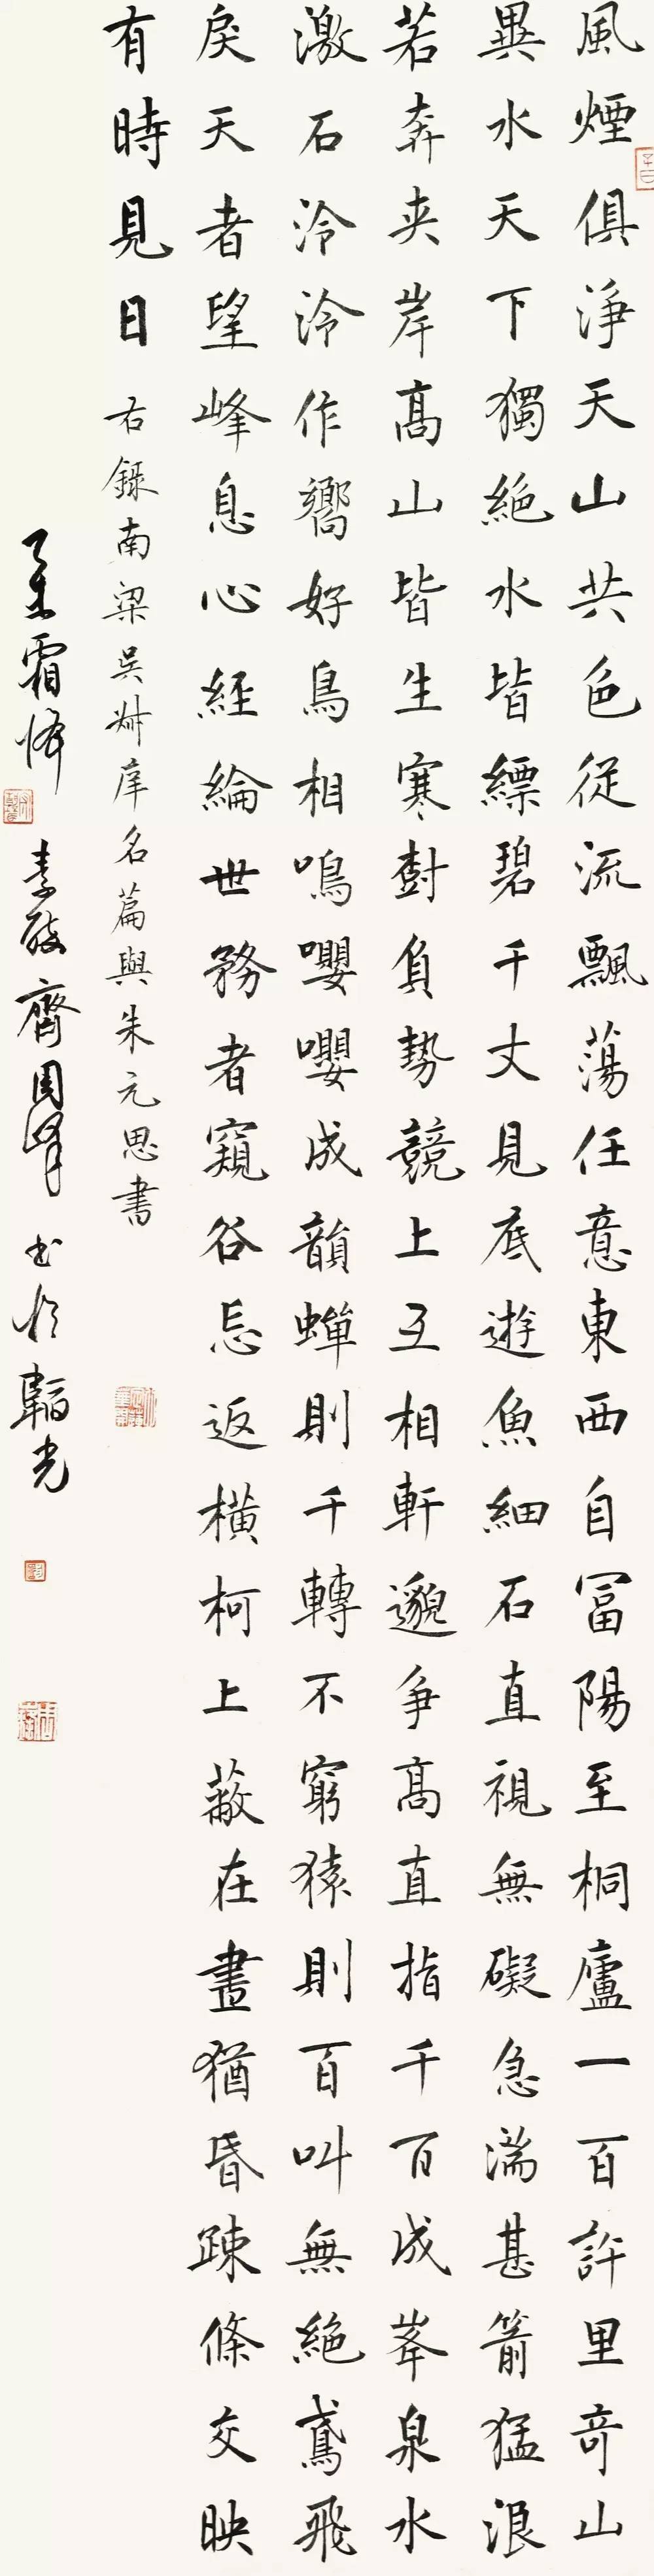 風煙俱淨天山共色從流飄蕩任意東西自冨陽至桐廬一百許里奇山
異水天下獨絕水皆縹碧千丈見底遊魚細石直視無礙急湍甚箭猛浪
若奔夾岸髙山皆生寒樹負勢競上互相軒邈爭髙直指千百成峯泉水
激石泠泠作嚮好鳥相鳴嚶嚶成韻蟬則千轉不窮猿則百叫無絕鳶飛
戾天者望峰息心經綸世務者窺谷忘返橫柯上蔽在晝猶昏踈條交映
有時見日 右錄南梁吳叔庠名篇與朱元思書
乙未霜降 素齋周峰書於韜光